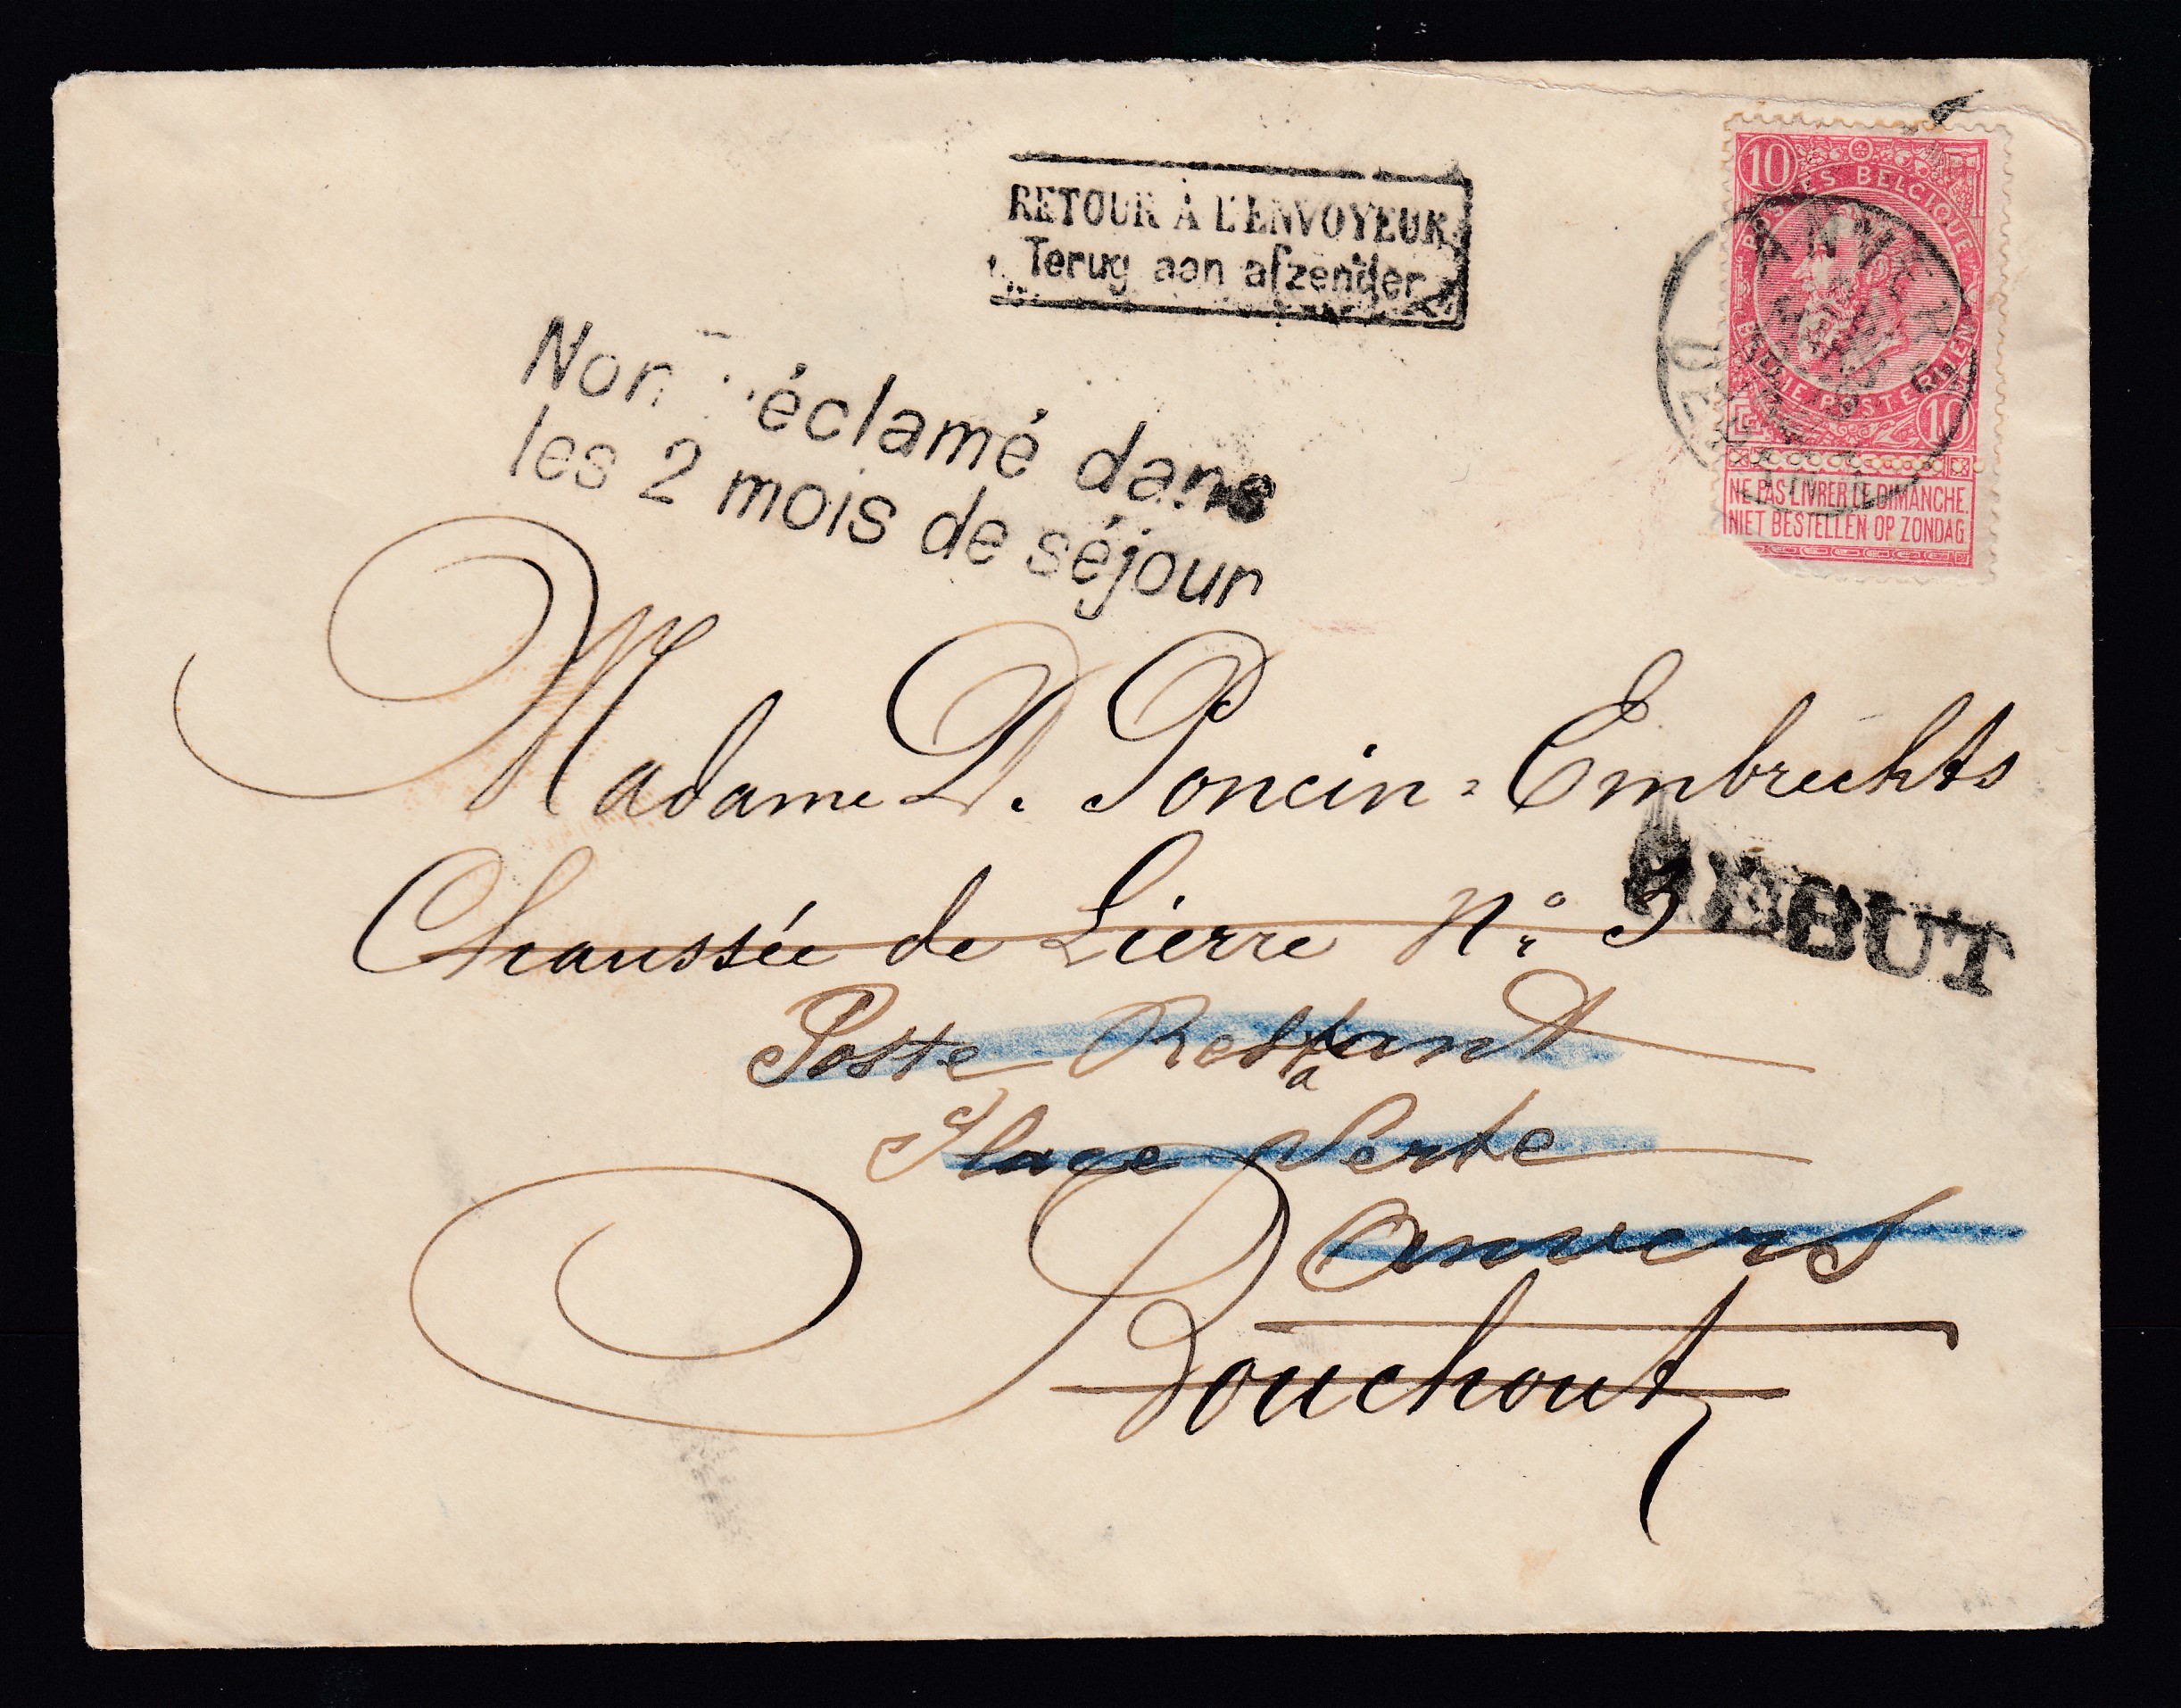 RETOUR À L'ENVOYEUR
Terug aan afzender
10
POSTES BELGIQUE
BELGIE POSTERIJEN
10
NE PAS LIVRER LE DIMANCHE.
NIET BESTELLEN OP ZONDAG
ANVERS
Non réclamé dans
les 2 mois de séjour
Madame D. Poncin=Embrechts
Chaussée de Lierre No. 3
REBUT
Poste Restant
a
Place Verte
Anvers
Bouchout